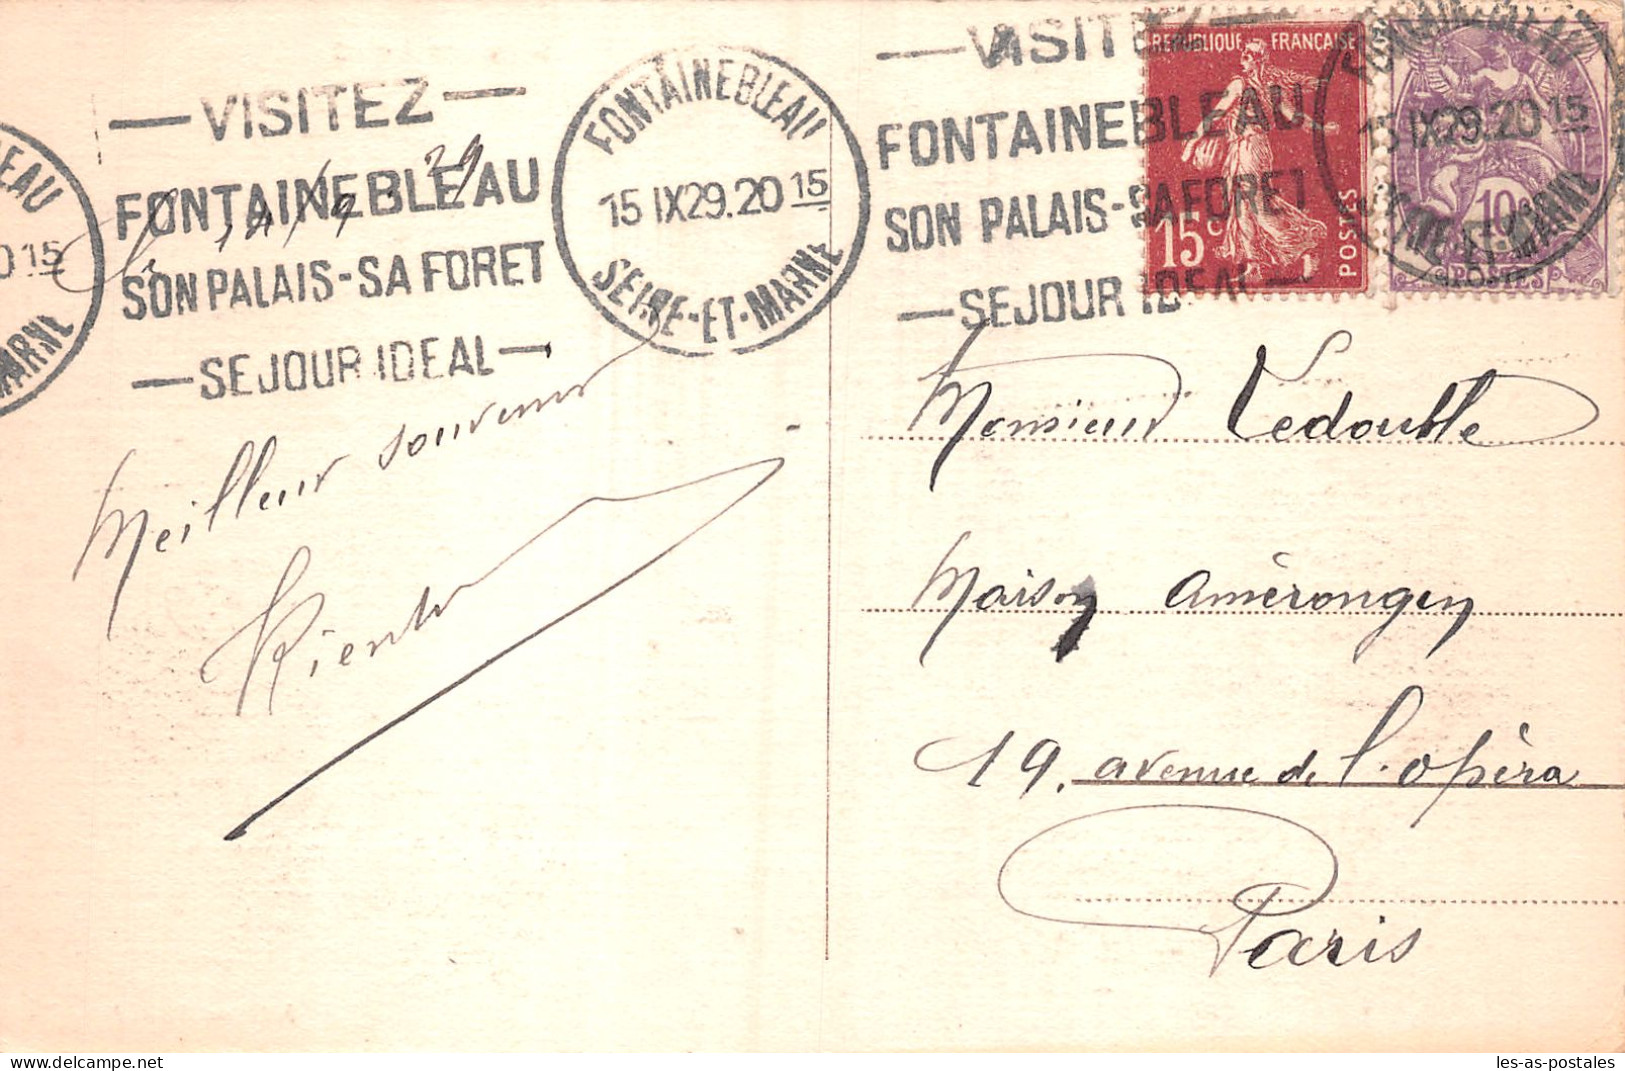 EAU
0 15
MARNE
— VISITEZ —
FONTAINEBLEAU
SON PALAIS-SA FORET
— SEJOUR IDEAL —
FONTAINEBLEAU
15 IX29.20 15
SEINE-ET-MARNE
— VISITEZ —
FONTAINEBLEAU
SON PALAIS-SA FORET
— SEJOUR IDEAL —
REPUBLIQUE FRANÇAISE
15 c
POSTES
FONTAINEBLEAU
15 IX29.20 15
SEINE-ET-MARNE
10c
POSTES
29
Meilleur souvenir
Monsieur Ledouble
Maison Amérongen
19, avenue de l'opéra
Paris
les-as-postales
Delcampe.net